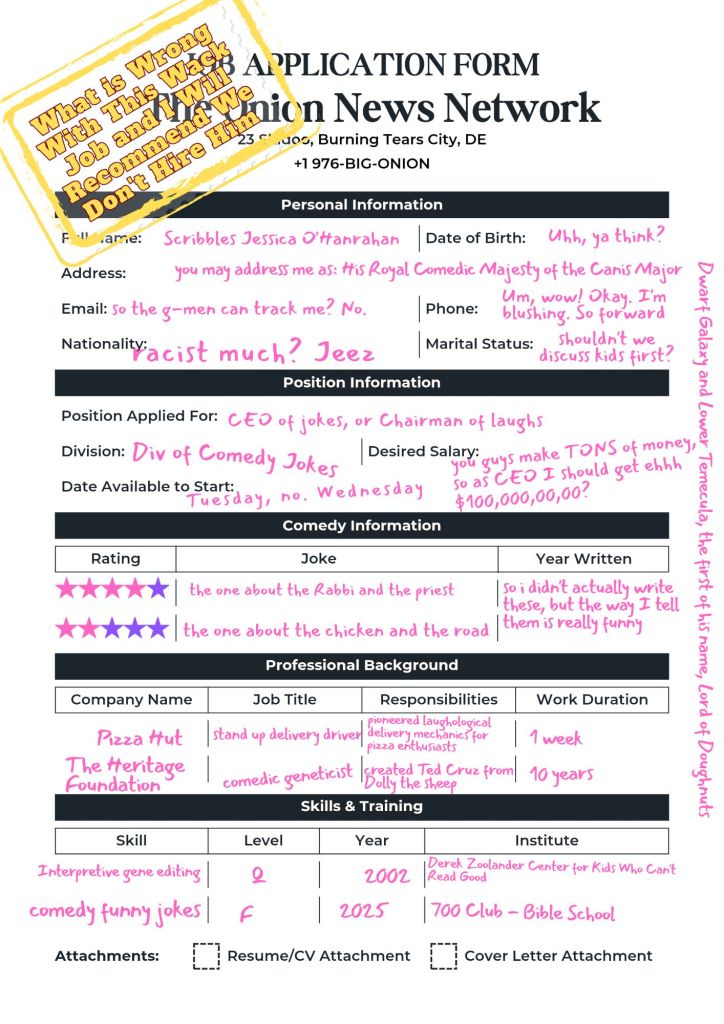 What is Wrong
With This Wack
Job and I Will
Recommend We
Don't Hire Him
JOB APPLICATION FORM
The Onion News Network
23 Burning Tears City, DE
+1 976-BIG-ONION
Personal Information
Full Name: Scribbles Jessica O'Hanrahan
Date of Birth: Uhh, ya think?
Address: you may address me as: His Royal Comedic Majesty of the Canis Major
Dwarf Galaxy and Lower Temecula, the first of his name, Lord of Doughnuts
Email: so the g-men can track me? No.
Phone: Um, wow! Okay. I'm
blushing. So forward
Nationality: racist much? Jeez
Marital Status: shouldn't we
discuss kids first?
Position Information
Position Applied For: CEO of jokes, or Chairman of laughs
Division: Div of Comedy Jokes
Desired Salary: you guys make TONS of money,
so as CEO I should get ehhh
$100,000,00,00?
Date Available to Start: Tuesday, no. Wednesday
Comedy Information
Rating Joke Year Written
the one about the Rabbi and the priest
the one about the chicken and the road
so i didn't actually write
these, but the way I tell
them is really funny
Professional Background
Company Name Job Title Responsibilities Work Duration
Pizza Hut
stand up delivery driver
pioneered laughological
delivery mechanics for
pizza enthusiasts
1 week
The Heritage
Foundation
comedic geneticist
created Ted Cruz from
Dolly the sheep
10 years
Skills & Training
Skill Level Year Institute
Interpretive gene editing
Q
2002
Derek Zoolander Center for Kids Who Can't
Read Good
comedy funny jokes
F
2025
700 Club – Bible School
Attachments: Resume/CV Attachment Cover Letter Attachment